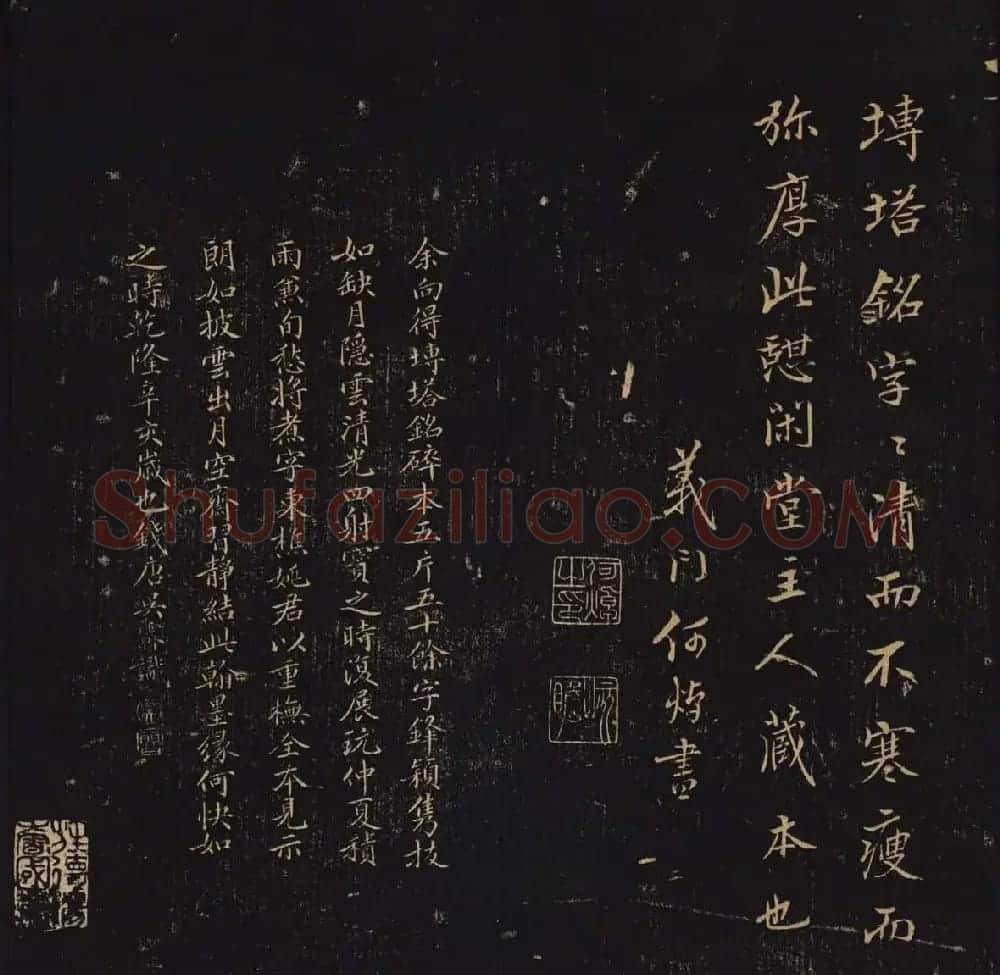 塼塔銘字〻清而不寒瘦而
弥厚此憇閑堂主人藏本也
義门何焯書
何焯之印
余向得塼塔銘碎本五片五十餘字鋒穎隽拔
如缺月隱雲清光四射寳之時復展玩仲夏積
雨兼旬愁將煮字東樵姚君以重橅全本見示
朗如披雲出月空齋靜結此翰墨缘何快如
之時乾隆辛亥嵗也錢唐吴識
Shufaziliao.COM